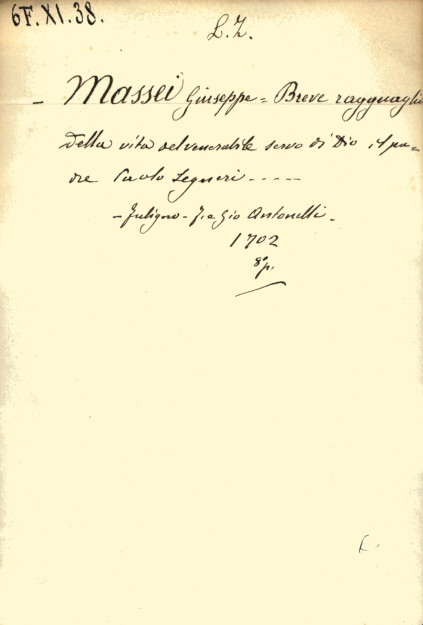 6F.XI.38.
L.Z.
- Massei Giuseppe = Breve ragguaglio
della vita del venerabile servo di Dio il pa=
dre Paolo Segneri -----
- Fuligno - Feliciano Antonelli -
1702
8º p.